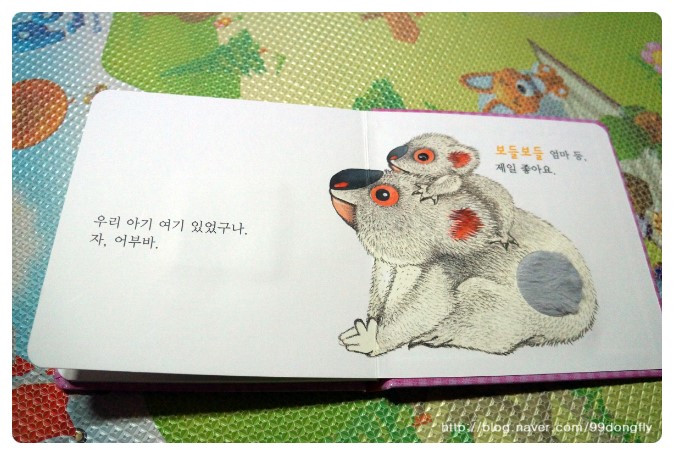 우리 아기 여기 있었구나.
자, 어부바.
보들보들 엄마 등,
제일 좋아요.
http://blog.naver.com/99dongfly